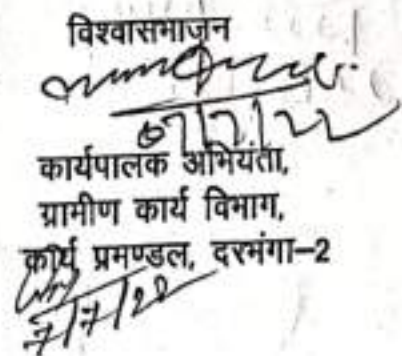 विश्वासभाजन
07/7/22
कार्यपालक अभियंता,
ग्रामीण कार्य विभाग,
कार्य प्रमण्डल, दरभंगा-2
7/7/22